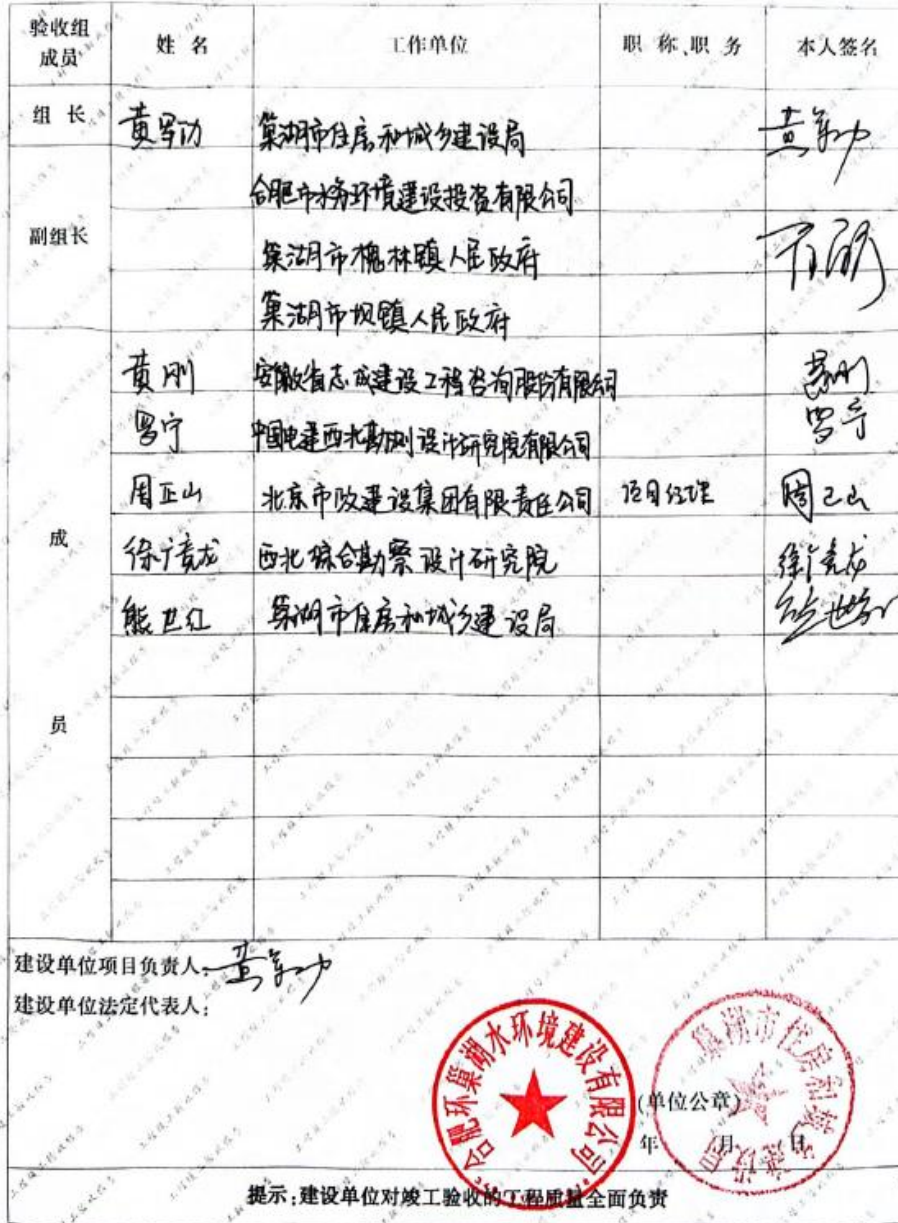 验收组成员 姓 名 工作单位 职 称、职 务 本人签名
组 长 黄军功 巢湖市住房和城乡建设局
合肥市水务环境建设投资有限公司
副组长 巢湖市槐林镇人民政府
巢湖市坝镇人民政府
黄刚 安徽省志成建设工程咨询股份有限公司 黄刚
罗宁 中国电建西北勘测设计研究院有限公司 罗宁
周正山 北京市政建设集团有限责任公司 项目经理 周正山
成 徐广竟龙 西北综合勘察设计研究院
熊世红 巢湖市住房和城乡建设局
员
建设单位项目负责人:
建设单位法定代表人:
合肥环巢湖水环境建设有限公司
巢湖市住房和城乡建设局
(单位公章)
年 月 日
提示:建设单位对竣工验收的工程质量全面负责